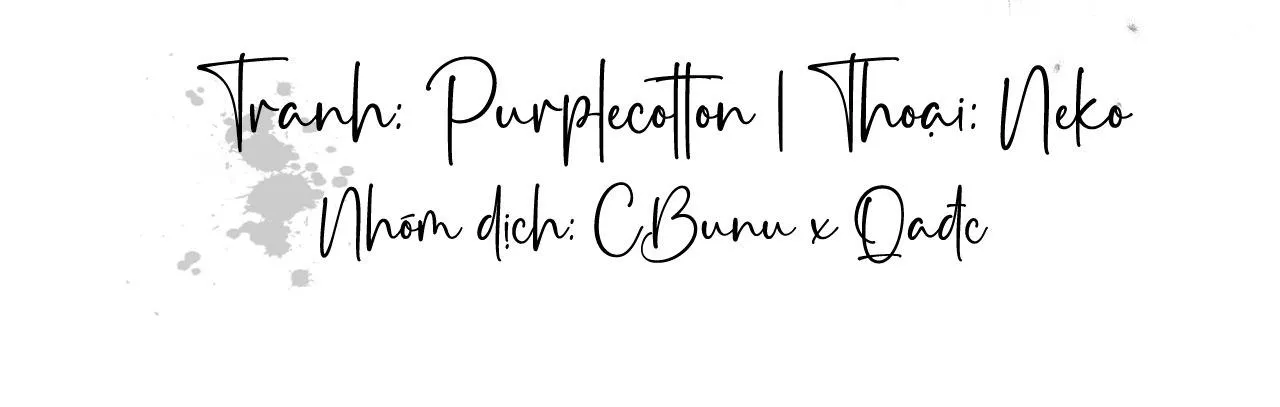 Tranh: Purplecotton | Thoại: Neko
Nhóm dịch: CBunu x Qađc